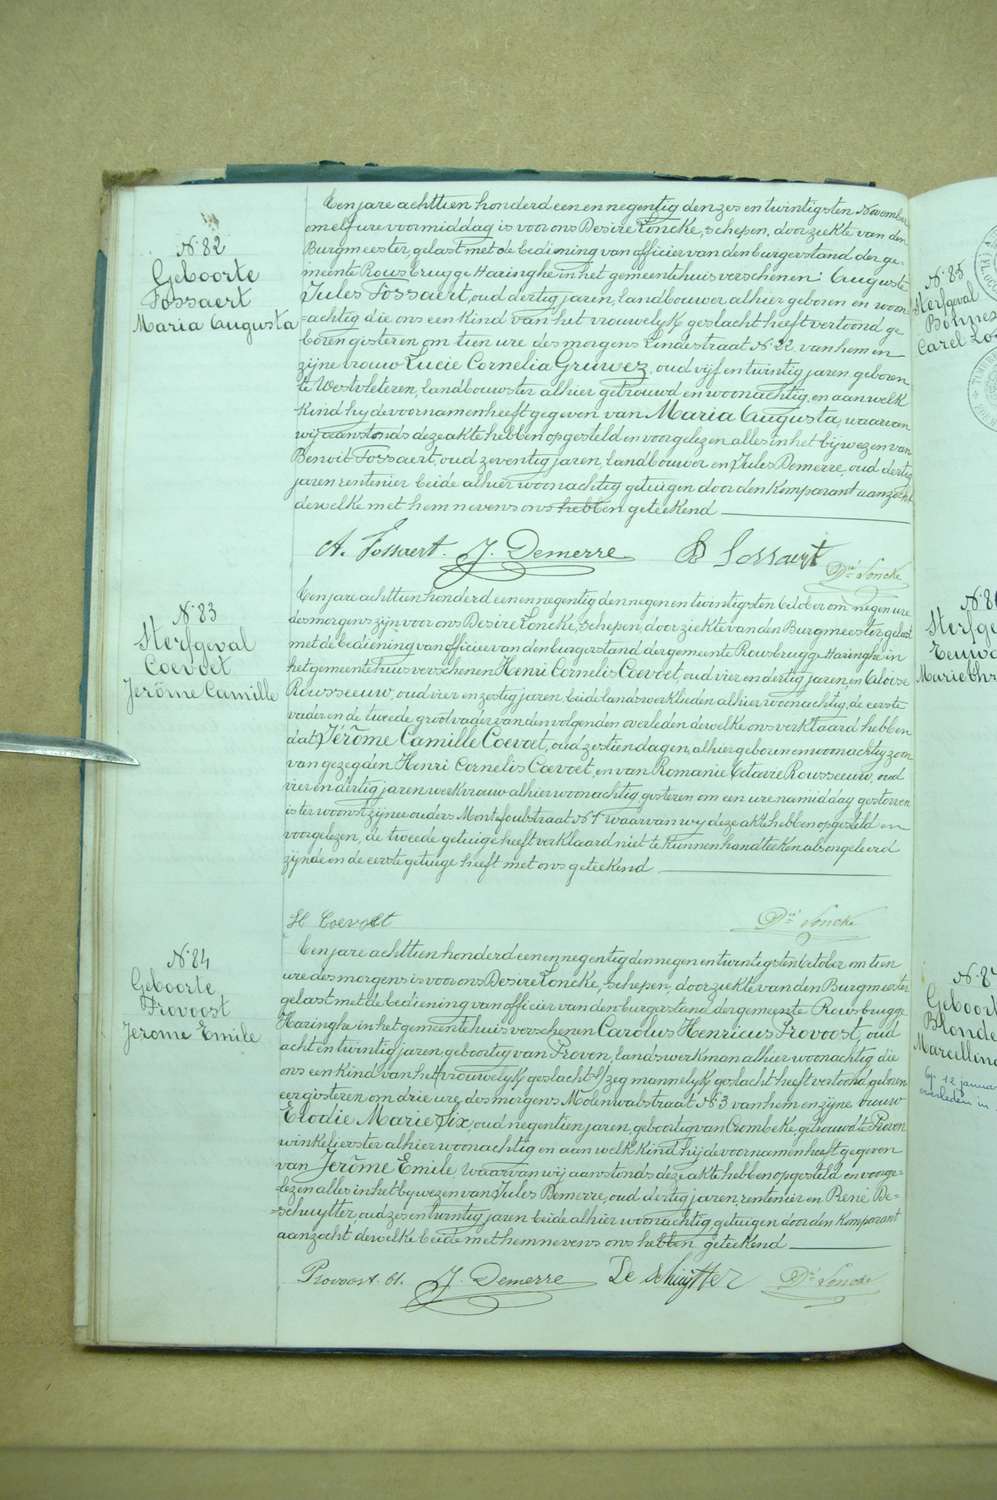 N. 82
Geboorte
Fossaert
Maria Augusta
Ten jare achttien honderd een en negentig den zes en twintigsten November
om elf ure voormiddag is voor ons Desire Loncke, schepen, door ziekte van den
Burgmeester, gelast met de bediening van officier van den burgerstand der ge-
meente Rousbrugge Haringhe in het gemeentehuis verschenen: Auguste
Jules Fossaert, oud dertig jaren, landbouwer alhier geboren en woon-
=achtig die ons een kind van het vrouwelyk geslacht heeft vertoond ge-
boren gisteren om tien ure des morgens Lindestraat N. 22 van hem en
zijne vrouw Lucie Cornelia Gruwez, oud vijf en twintig jaren, geboren
te Westvleteren, landbouwster alhier getrouwd en woonachtig, en aan welk
kind hy de voornamen heeft gegeven van Maria Augusta, waarvan
wij aanstonds deze akte hebben opgesteld en voorgelezen alles in het bijwezen van
Benoit Fossaert, oud zeventig jaren, landbouwer en Jules Demerre, oud dertig
jaren rentenier beide alhier woonachtig getuigen door den komparant aanzocht
dewelke met hem nevens ons hebben geteekend
A. Fossaert. J. Demerre B Fossaert
Dré Loncke
N. 83
Sterfgeval
Coevoet
Jerôme Camille
Ten jare achttien honderd een en negentig den negen en twintigsten October om negen ure
des morgens zijn voor ons Desire Loncke, Schepen, door ziekte van den Burgmeester gelast
met de bediening van officier van den burgerstand der gemeente Rousbrugge Haringhe in
het gemeentehuis verschenen Henri Cornelis Coevoet oud vier en dertig jaren, en Aloise
Rousseeuw, oud vier en zestig jaren, beide landswerklieden alhier woonachtig, de eerste
vader en de tweede grootvader van den volgenden overleden dewelke ons verklaard hebben
dat Jerôme Camille Coevoet, oud zestien dagen, alhier geboren en woonachtig zoon
van gezegden Henri Cornelis Coevoet, en van Romanie Octavie Rousseeuw, oud
vier en dertig jaren werkvrouw alhier woonachtig gisteren om een ure namiddag gestorven
is ter woonst zijner ouders Montefoulstraat N. 1 waarvan wy deze akte hebben opgesteld en
voorgelezen, de tweede getuige heeft verklaard niet te kunnen handteeken als ongeleerd
zijnde en de eerste getuige heeft met ons geteekend
H Coevoet Dré Loncke
N. 84
Geboorte
Provoost
Jerome Emile
Ten jare achttien honderd een en negentig den negen en twintigsten October om tien
ure des morgens is voor ons Desire Loncke, Schepen, door ziekte van den Burgmeester
gelast met de bediening van officier van den burgerstand der gemeente Rousbrugge
Haringhe in het gemeentehuis verschenen Carolus Henricus Provoost, oud
acht en twintig jaren, geboortig van Proven, landswerkman alhier woonachtig die
ons een kind van het vrouwelyk geslacht zeg mannelyk geslacht heeft vertoond, geboren
eergisteren om drie ure des morgens Molenwalstraat N. 3 van hem en zijne vrouw
Elodie Marie Six, oud negentien jaren, geboortig van Crombeke, getrouwd te Proven
winkelierster alhier woonachtig en aan welk kind hij de voornamen heeft gegeven
van Jerôme Emile, waarvan wij aanstonds deze akte hebben opgesteld en voorge-
=lezen alles in het bywezen van Jules Demerre, oud dertig jaren rentenier en René De-
=schuytter, oud zes en twintig jaren beide alhier woonachtig, getuigen door den komparant
aanzocht dewelke beide met hem nevens ons hebben geteekend
Provoost. J. Demerre De Schuÿtter Dré Loncke
N. 85
Sterfgeval
Bonnes
Carel Lo
N. 86
Sterfge
Marie
N. 87
Geboort
Blonde
Marcelline
Op 12 janua
overleden in